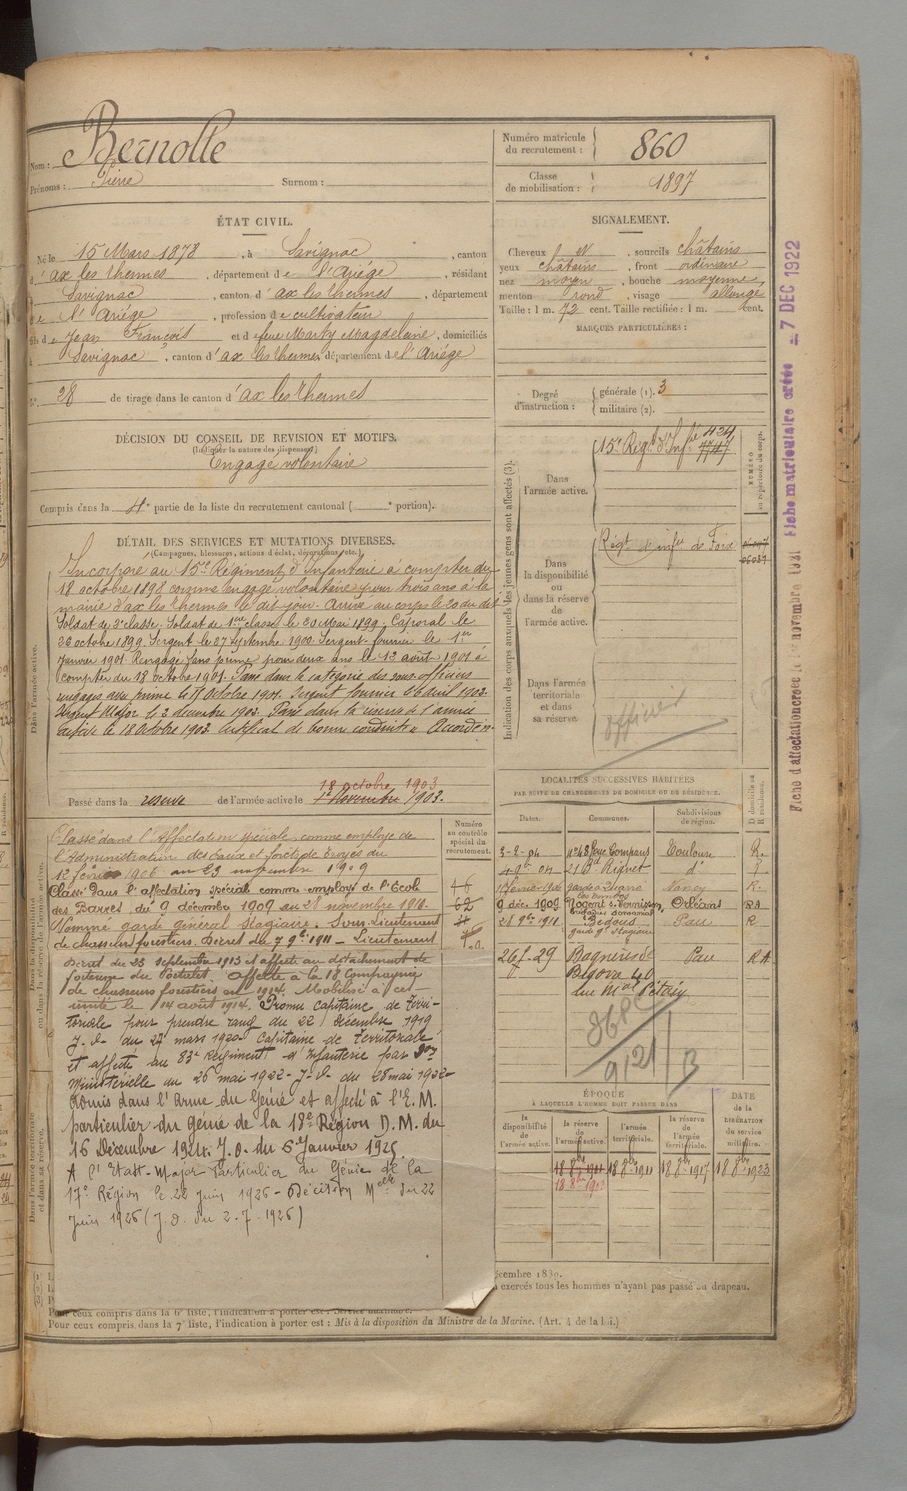 Nom : Bernolle
Prénoms : Pierre Surnom :
Numéro matricule
du recrutement : 860
Classe
de mobilisation : 1897
ÉTAT CIVIL.
Né le 15 Mars 1878, à Savignac, canton
d'ax les thermes, département de l'Ariége, résidant
à Savignac, canton d'ax les thermes, département
de l'Ariége, profession de cultivateur
fils de Jean François et de feue Marty Magdelaine, domiciliés
à Savignac, canton d'ax les thermes, département de l'Ariége
N° 28 de tirage dans le canton d'ax les thermes
DÉCISION DU CONSEIL DE REVISION ET MOTIFS.
(Indiquer la nature des dispenses.)
Engagé volontaire
Compris dans la 4e partie de la liste du recrutement cantonal ( e portion).
SIGNALEMENT.
Cheveux , sourcils châtains
yeux châtains, front ordinaire
nez moyen, bouche moyenne,
menton rond, visage allongé
Taille : 1 m. 72 cent. Taille rectifiée : 1 m. cent.
MARQUES PARTICULIÈRES :
Degré
d'instruction :
générale (1). 3
militaire (2).
DÉTAIL DES SERVICES ET MUTATIONS DIVERSES.
(Campagnes, blessures, actions d'éclat, décorations, etc.)
Dans l'armée active.
Incorporé au 15e Régiment d'Infanterie à compter du
18 octobre 1898 comme engagé volontaire pour trois ans à la
mairie d'ax les thermes le dit jour. Arrivé au corps le 20 du dit
Soldat de 2e classe. Soldat de 1ere classe le 20 Mai 1899. Caporal le
26 octobre 1899. Sergent le 27 septembre 1900. Sergent-fourrier le 1er
janvier 1901. Rengagé sans prime pour deux ans le 13 août 1901 à
compter du 18 octobre 1901. Passé dans la catégorie des sous-officiers
rengagés avec prime le 17 Octobre 1901. Sergent fourrier 1903.
Sergent Major le 2 1903. Passé dans la réserve de l'armée
active le 18 Octobre 1903. Certificat de bonne conduite "Accordé".
Passé dans la réserve de l'armée active le 1er Novembre 1903.
18 octobre 1903
Indication des corps auxquels les jeunes gens sont affectés (3).
Dans
l'armée active.
15e Régt d'Infie 424
Dans
la disponibilité
ou
dans la réserve
de
l'armée active.
Régt d'infie de Foix
Dans l'armée
territoriale
et dans
sa réserve.
officier
NUMÉRO
au répertoire du corps.
Classé dans l'Affectation spéciale comme employé de
l'Administration des Eaux et forêts de Troyes du
12 février 1906 au 23 novembre 1909
Classé dans l'affectation spéciale comme employé de l'École
des Barres du 9 décembre 1909 au 28 novembre 1911.
Nommé garde général Stagiaire. Sous-Lieutenant
de chasseurs forestiers. Décret du 7 9bre 1911 – Lieutenant
Décret du 23 septembre 1913 et affecté au détachement de
forteresse du Portalet. Affecté à la 18 Compagnie
de chasseurs forestiers en 1914. Mobilisé à cet-
unité le 14 août 1914. Promu capitaine de Terri-
toriale pour prendre rang du 22 Décembre 1919
J.O. du 27 mars 1920 Capitaine de Territoriale
et affecté au 83e Régiment d'Infanterie par Don
Ministérielle du 26 mai 1922 - J.O. du 28 mai 1922 -
Admis dans l'Arme du Génie et affecté à l'E.M.
particulier du génie de la 18e Région D.M. du
16 Décembre 1924. J.O. du 5 Janvier 1925
A l'Etat-Major Particulier du Génie de la
17e Région le 22 juin 1926 - Décision Melle du 22
Juin 1926 (J.O. du 2-7-1926)
Numéro
au contrôle
spécial du
recrutement.
46
62
LOCALITÉS SUCCESSIVES HABITÉES
PAR SUITE DE CHANGEMENTS DE DOMICILE OU DE RÉSIDENCE.
Dates. Communes. Subdivisions
de région. D domicile ou
R résidence.
3-2-04 Toulouse R.
4 9bre 04 21 Bd Riquet do R
Nancy R.
9 déce 1909 Nogent s. Vernisson Orléans RA
28 9bre 1911 Bedous Pau R
garde gl Stagiaire
26 f. 29 Bagnères de Pau RA
Bigorre 40
rue Mal Pétain
9/21 B
ÉPOQUE
À LAQUELLE L'HOMME DOIT PASSER DANS
la
disponibilité
de
l'armée active.
la réserve
de
l'armée active.
l'armée
territoriale.
la réserve
de
l'armée
territoriale.
DATE
de la
LIBÉRATION
du service
militaire.
18 8bre 1901 18 8bre 1911 18 8bre 1917 18 8bre 1923
18 8bre 1903
décembre 1889.
exercés tous les hommes n'ayant pas passé au drapeau.
Pour ceux compris dans la 6e liste, l'indication à porter est : Service auxiliaire.
Pour ceux compris dans la 7e liste, l'indication à porter est : Mis à la disposition du Ministre de la Marine. (Art. 4 de la loi.)
Fiche matriculaire créée le 7 DEC 1922
Fiche d'affectation créée le novembre 1931